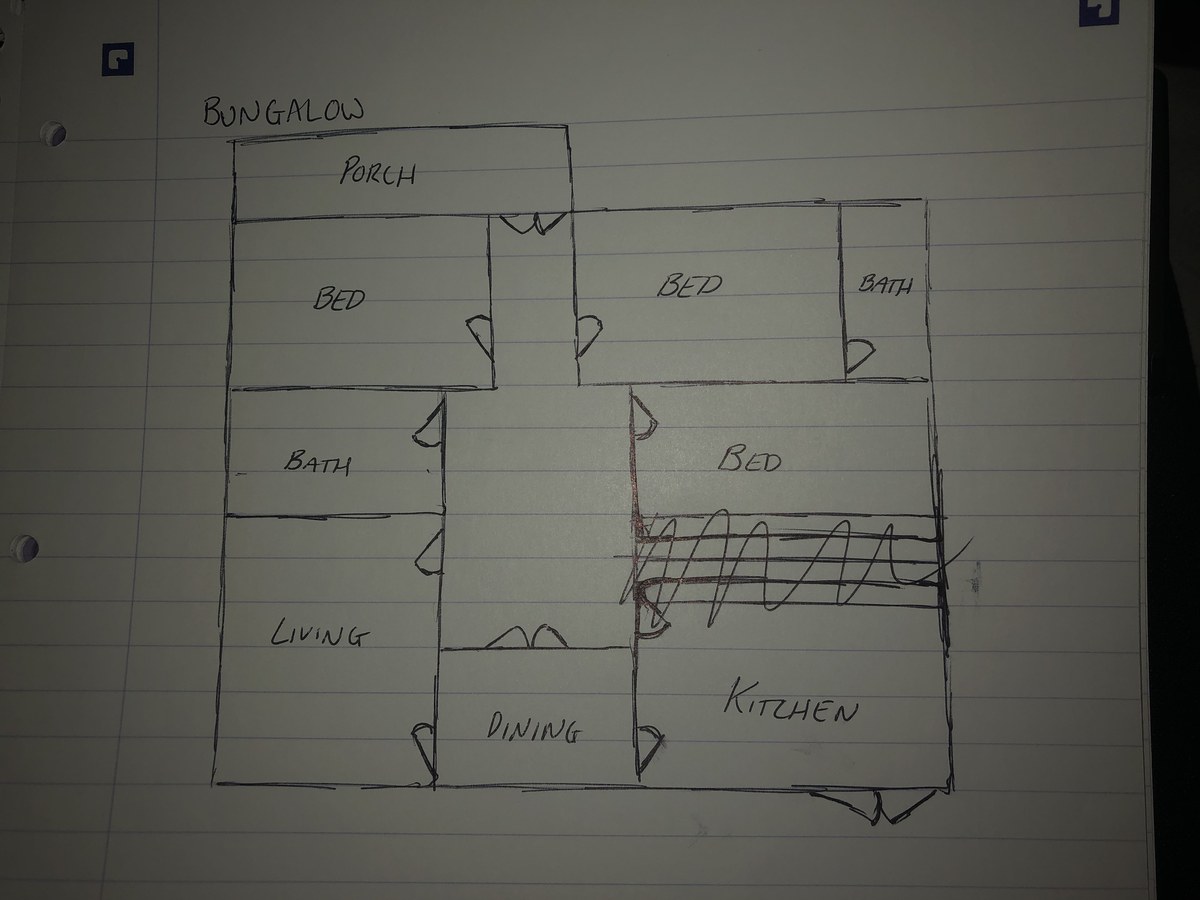 BUNGALOW
PORCH
BED
BED
BATH
BATH
BED
LIVING
DINING
KITCHEN